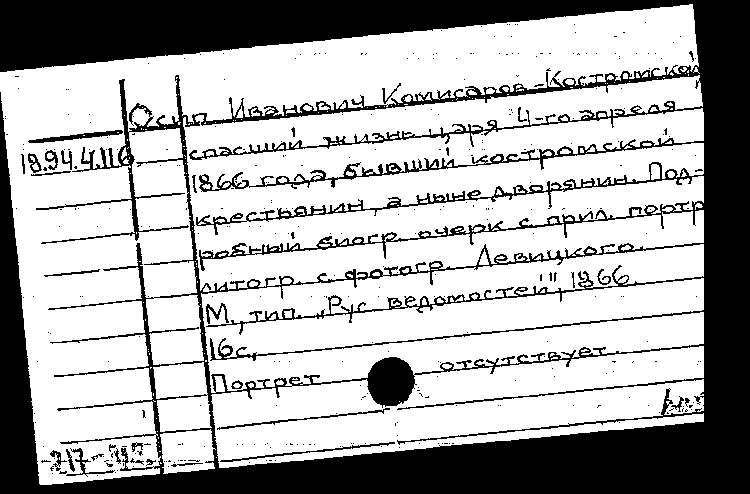 Осип Иванович Комисаров-Костромской
18.94.4.116. спасший жизнь царя 4-го апреля
1866 года, бывший костромской
крестьянин, а ныне дворянин. Под-
робный биогр. очерк с прил. портр
литогр. с фотогр. Левицкого.
М., тип. „Рус ведомостей", 1866.
16с,
Портрет отсутствует.
217-